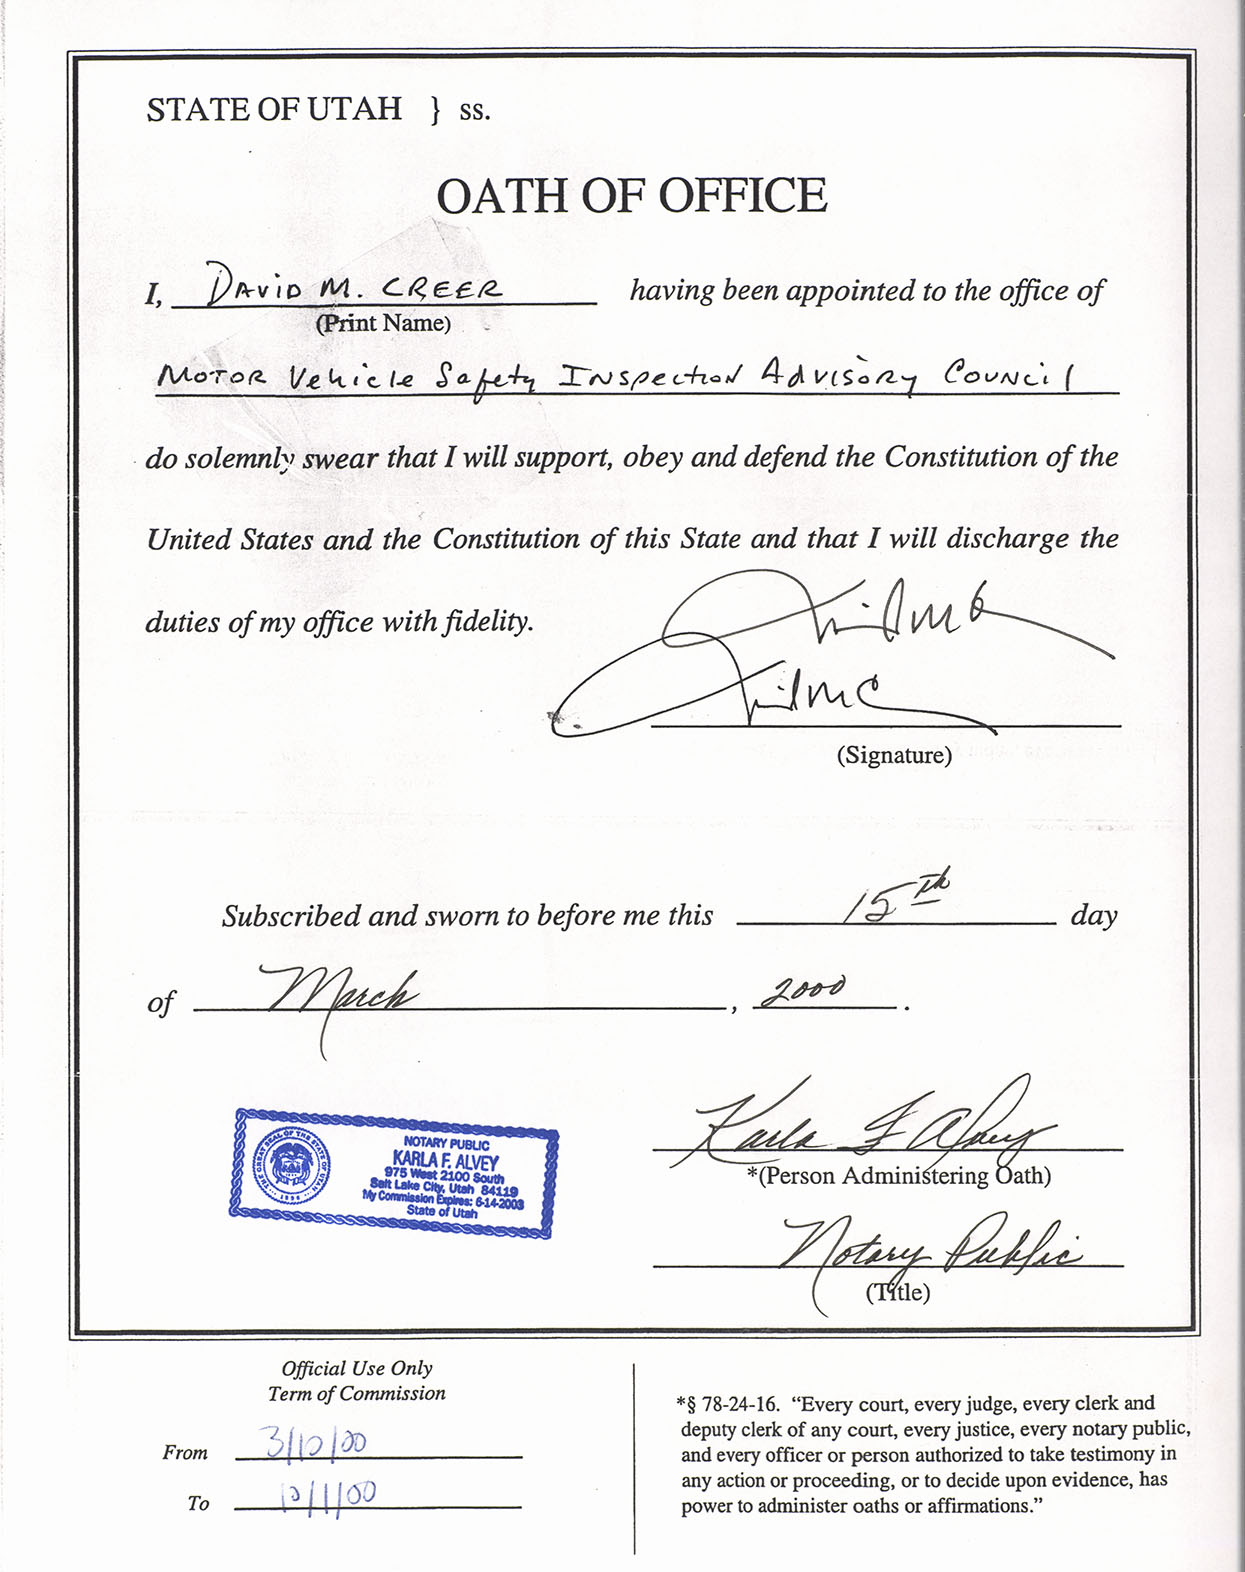 STATE OF UTAH } ss.
OATH OF OFFICE
I, DAVID M. CREER having been appointed to the office of
(Print Name)
Motor Vehicle Safety Inspection Advisory Council
do solemnly swear that I will support, obey and defend the Constitution of the
United States and the Constitution of this State and that I will discharge the
duties of my office with fidelity.
(Signature)
Subscribed and sworn to before me this 15th day
of March, 2000.
THE GREAT SEAL OF THE STATE OF UTAH
1896
NOTARY PUBLIC
KARLA F. ALVEY
975 West 2100 South
Salt Lake City, Utah 84119
My Commission Expires: 6-14-2003
State of Utah
Karla F Alvey
*(Person Administering Oath)
Notary Public
(Title)
Official Use Only
Term of Commission
From 3/10/00
To 10/1/00
*§ 78-24-16. “Every court, every judge, every clerk and
deputy clerk of any court, every justice, every notary public,
and every officer or person authorized to take testimony in
any action or proceeding, or to decide upon evidence, has
power to administer oaths or affirmations.”